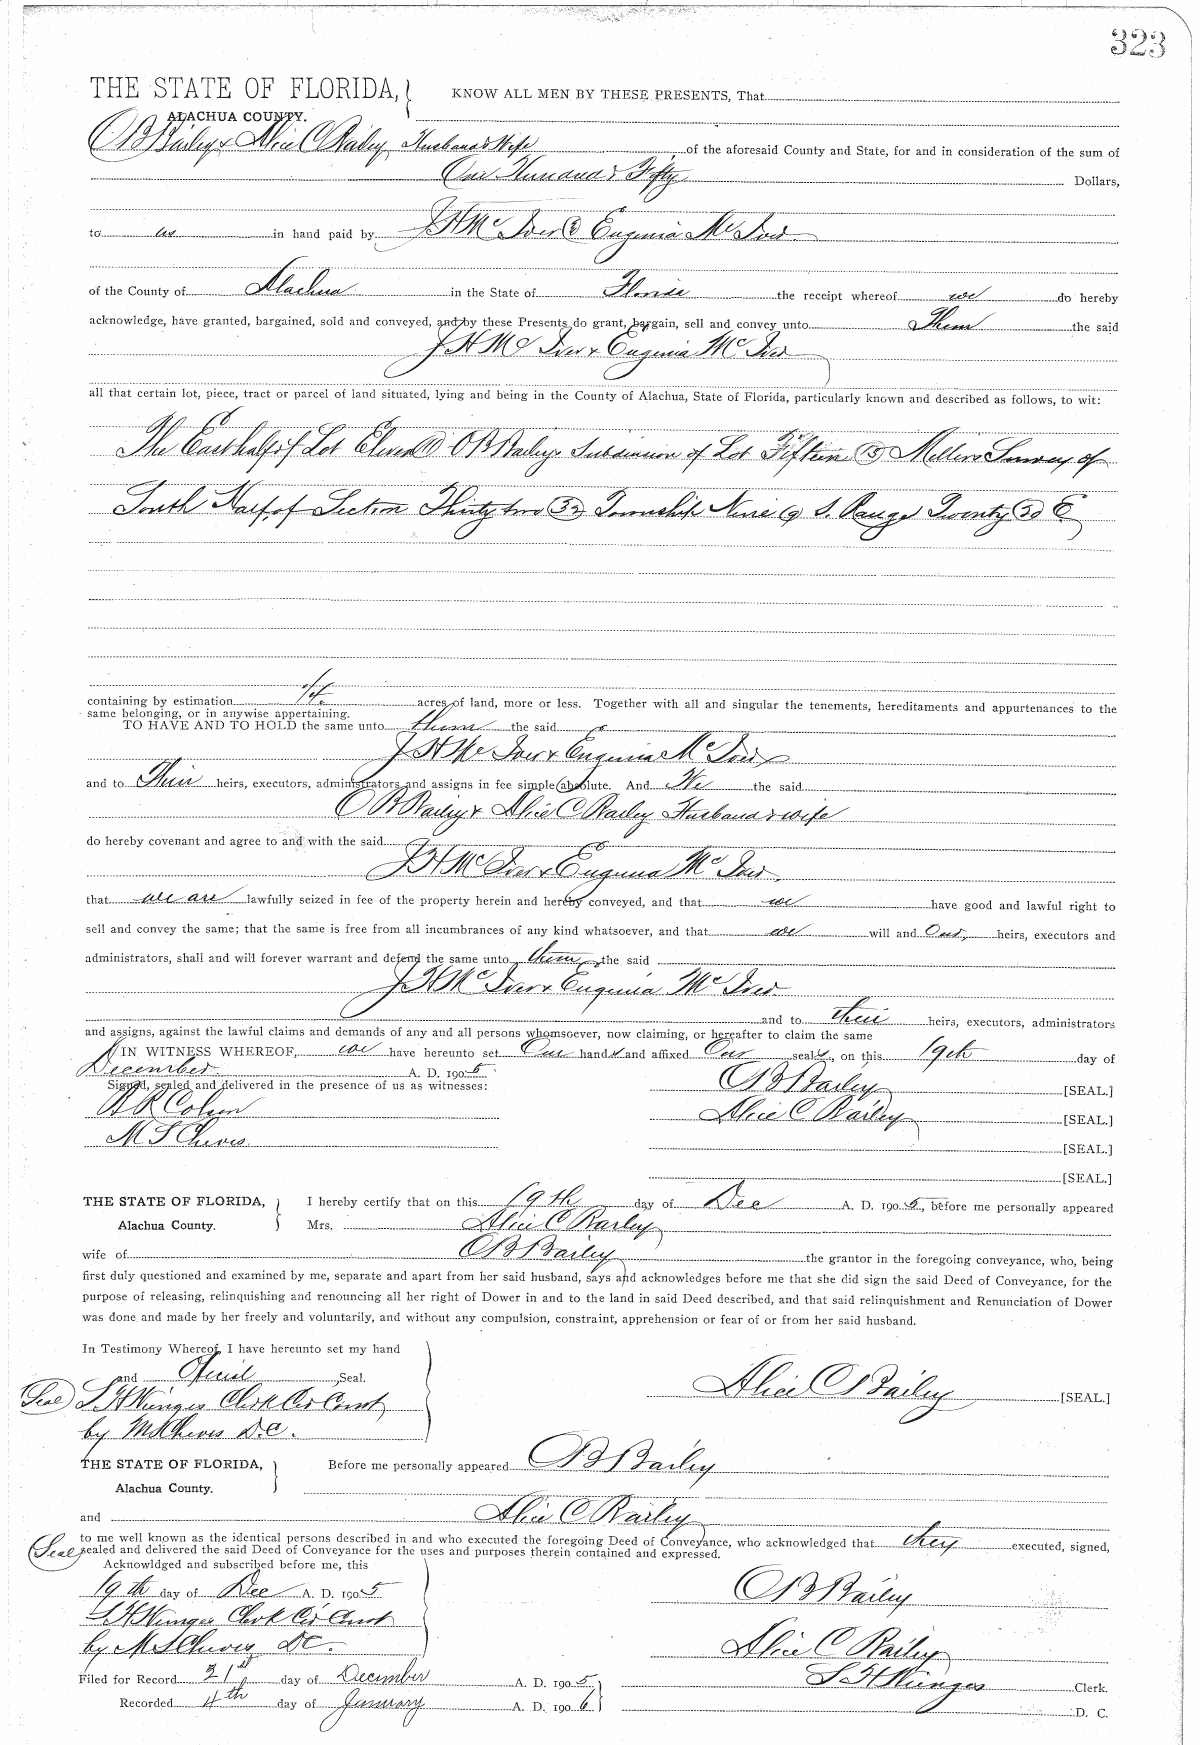 323
THE STATE OF FLORIDA, KNOW ALL MEN BY THESE PRESENTS, That
ALACHUA COUNTY.
O B Bailey & Alice C Bailey Husband & Wife of the aforesaid County and State, for and in consideration of the sum of
One Hundred & Fifty Dollars,
to us in hand paid by J H Mc Iver & Eugenia Mc Iver
of the County of Alachua in the State of Florida the receipt whereof we do hereby
acknowledge, have granted, bargained, sold and conveyed, and by these Presents do grant, bargain, sell and convey unto Them the said
J H Mc Iver & Eugenia Mc Iver
all that certain lot, piece, tract or parcel of land situated, lying and being in the County of Alachua, State of Florida, particularly known and described as follows, to wit:
The East half of Lot Eleven 11 O B Baileys Subdivision of Lot Fifteen 15 Millers Survey of
South Half of Section Thirty two 32 Township Nine 9 S. Range Twenty 20 E
containing by estimation acres of land, more or less. Together with all and singular the tenements, hereditaments and appurtenances to the
same belonging, or in anywise appertaining.
TO HAVE AND TO HOLD the same unto them the said
J H Mc Iver & Eugenia Mc Iver
and to Their heirs, executors, administrators and assigns in fee simple absolute. And We the said
O B Bailey & Alice C Bailey Husband & wife
do hereby covenant and agree to and with the said
J H Mc Iver & Eugenia Mc Iver.
that we are lawfully seized in fee of the property herein and hereby conveyed, and that we have good and lawful right to
sell and convey the same; that the same is free from all incumbrances of any kind whatsoever, and that we will and Our, heirs, executors and
administrators, shall and will forever warrant and defend the same unto them the said
J H Mc Iver & Eugenia Mc Iver
and to their heirs, executors, administrators
and assigns, against the lawful claims and demands of any and all persons whomsoever, now claiming, or hereafter to claim the same
IN WITNESS WHEREOF, we have hereunto set Our hands and affixed Our seals, on this 19th day of
December A. D. 1905
Signed, sealed and delivered in the presence of us as witnesses: O B Bailey [SEAL.]
Colson Alice C Bailey [SEAL.]
M S Cheves [SEAL.]
[SEAL.]
THE STATE OF FLORIDA, I hereby certify that on this 19th day of Dec A. D. 1905, before me personally appeared
Alachua County. Mrs. Alice C Bailey
wife of O B Bailey the grantor in the foregoing conveyance, who, being
first duly questioned and examined by me, separate and apart from her said husband, says and acknowledges before me that she did sign the said Deed of Conveyance, for the
purpose of releasing, relinquishing and renouncing all her right of Dower in and to the land in said Deed described, and that said relinquishment and Renunciation of Dower
was done and made by her freely and voluntarily, and without any compulsion, constraint, apprehension or fear of or from her said husband.
In Testimony Whereof, I have hereunto set my hand
and Official Seal.
Seal S H Wienges Clerk Cir Court Alice C Bailey [SEAL.]
by M S Cheves D.C.
THE STATE OF FLORIDA, Before me personally appeared O B Bailey
Alachua County.
and Alice C Bailey
to me well known as the identical persons described in and who executed the foregoing Deed of Conveyance, who acknowledged that they executed, signed,
Seal sealed and delivered the said Deed of Conveyance for the uses and purposes therein contained and expressed.
Acknowldged and subscribed before me, this
19th day of Dec A. D. 1905 O B Bailey
S H Wienges Clerk Cir Court
by M S Cheves DC. Alice C Bailey
Filed for Record 21st day of December A. D. 1905 S H Wienges Clerk.
Recorded 4th day of January A. D. 1906 D. C.